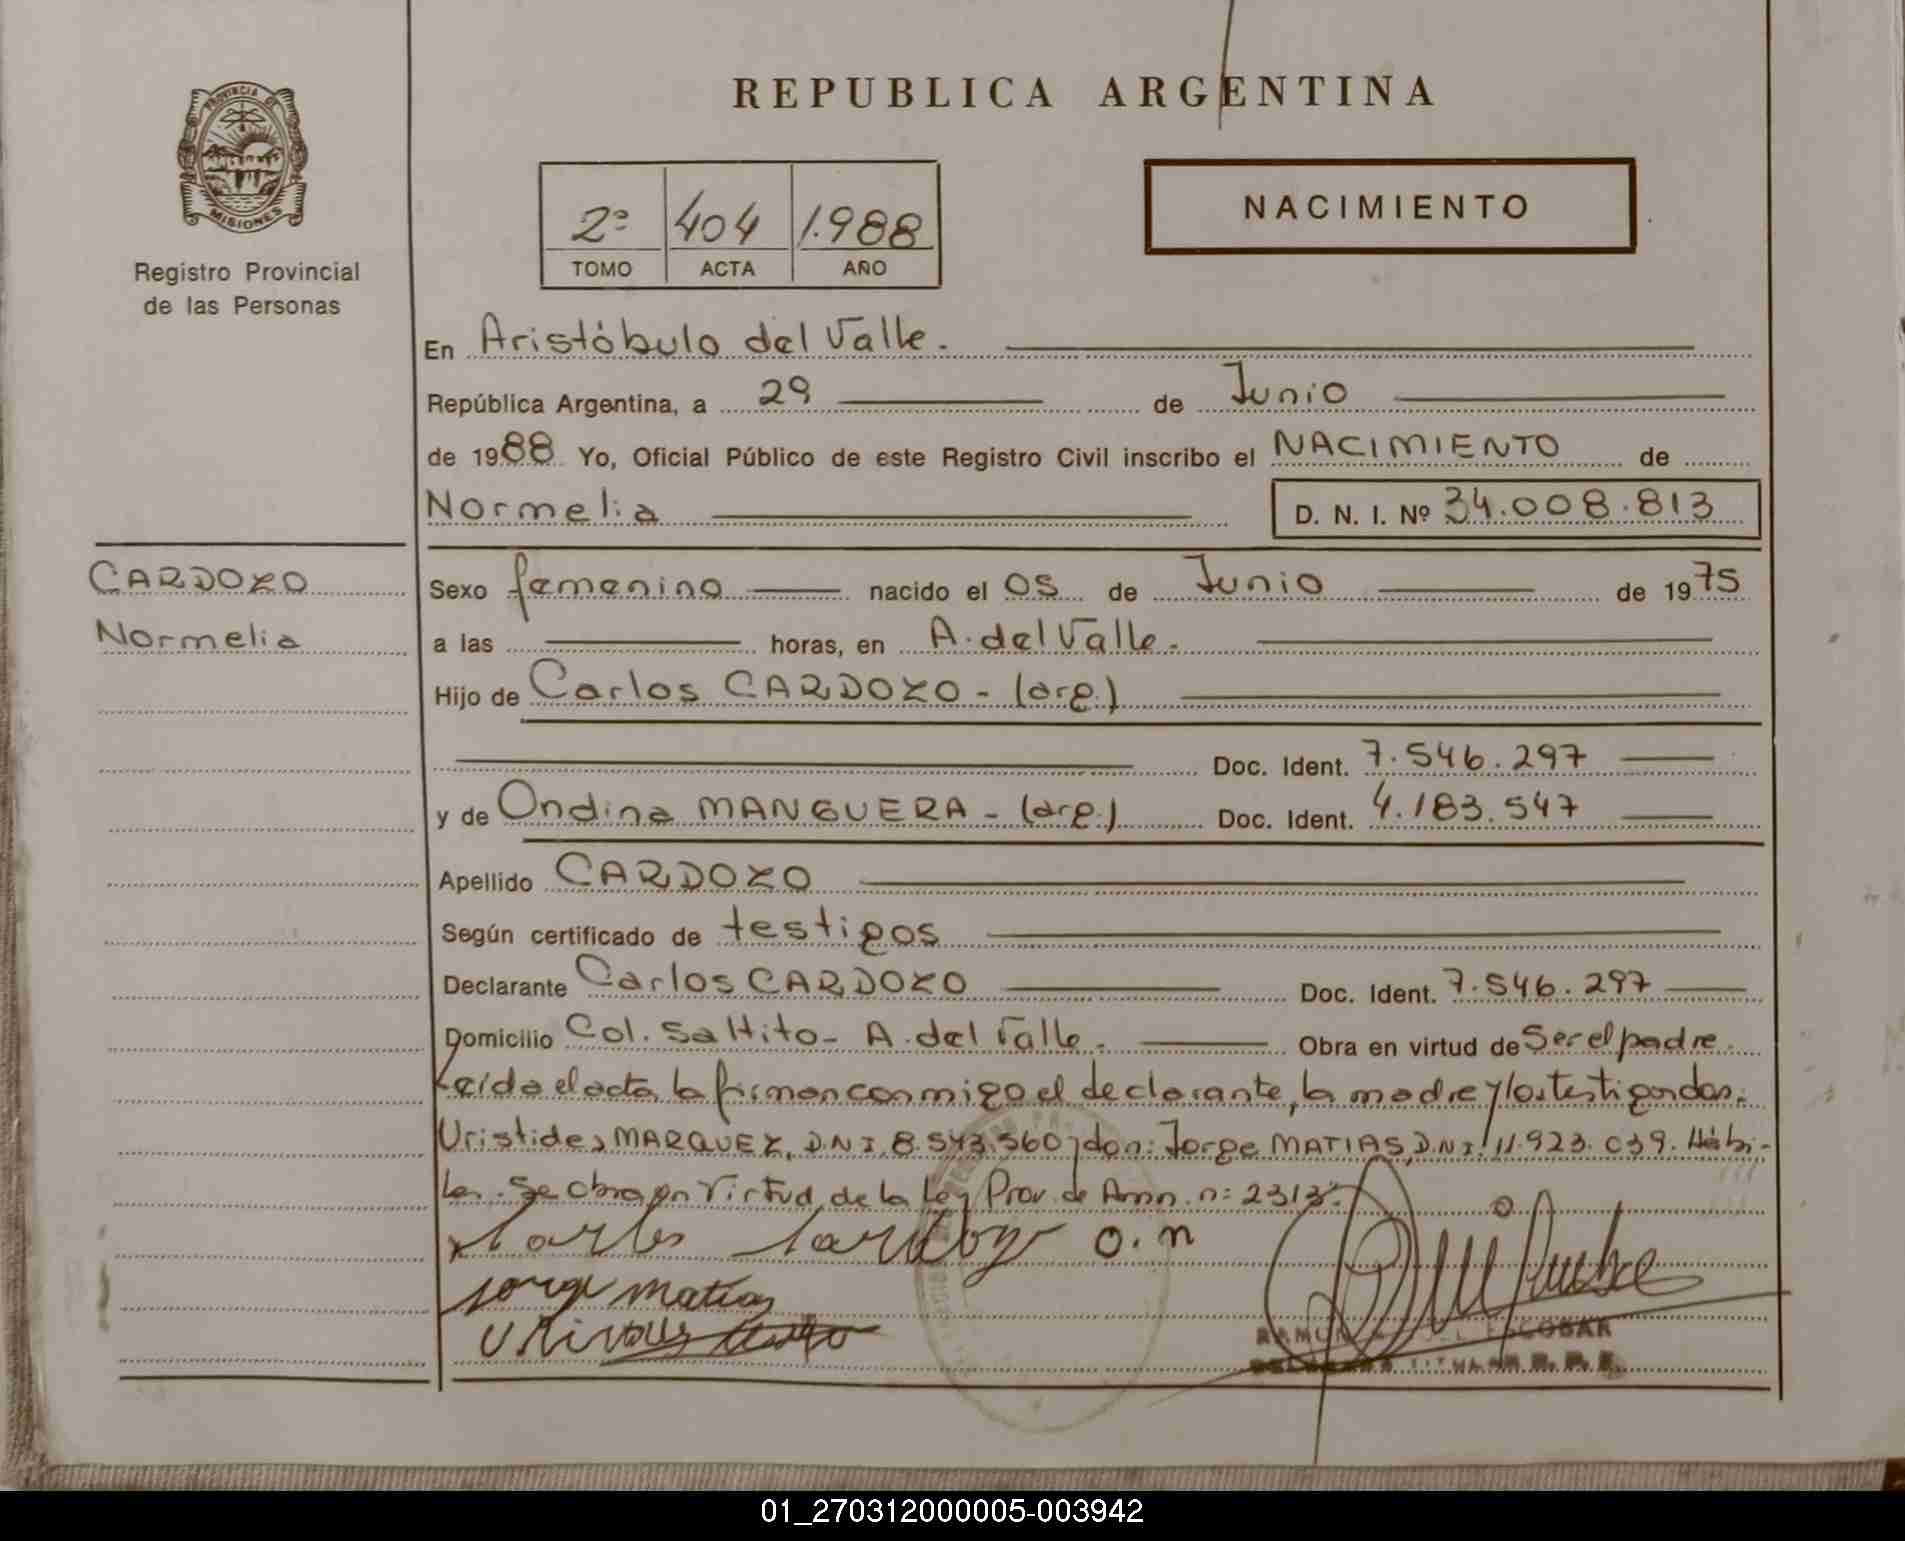 REPUBLICA ARGENTINA
PROVINCIA DE
MISIONES
Registro Provincial
de las Personas
2º 404 1.988
TOMO ACTA AÑO
NACIMIENTO
En Aristóbulo del Valle.
República Argentina, a 29 de Junio
de 1988 Yo, Oficial Público de este Registro Civil inscribo el NACIMIENTO de
Normelia D. N. I. Nº 34.008.813
CARDOZO
Normelia
Sexo femenino nacido el 05 de Junio de 1975
a las horas, en A. del Valle.
Hijo de Carlos CARDOZO - (arg.)
Doc. Ident. 7.546.297
y de Ondina MANGUERA - (arg.) Doc. Ident. 4.183.547
Apellido CARDOZO
Según certificado de testigos
Declarante Carlos CARDOZO Doc. Ident. 7.546.297
Domicilio Col. Saltito - A. del Valle. Obra en virtud de Ser el padre.
Leída el acta, la firman conmigo el declarante, la madre y los testigos don:
Uristides MARQUEZ, D.N.I. 8.543.560 y don: Jorge MATIAS, D.N.I. 11.923.039. Hábi-
les. Se obra en Virtud de la Ley Prov. de Amn. n: 2313.
Carlos Cardozo O. M
Jorge Matias
ESCOBAR
TITULAR R. P. P.
01_270312000005-003942